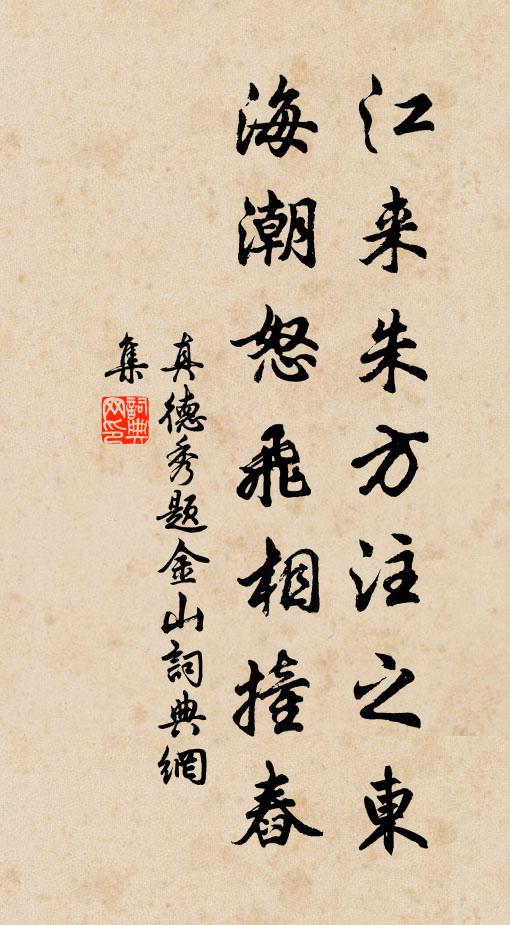 江来朱方注之東
海潮怒飛相撞舂
真德秀题金山詞典網
集
詞典
网印